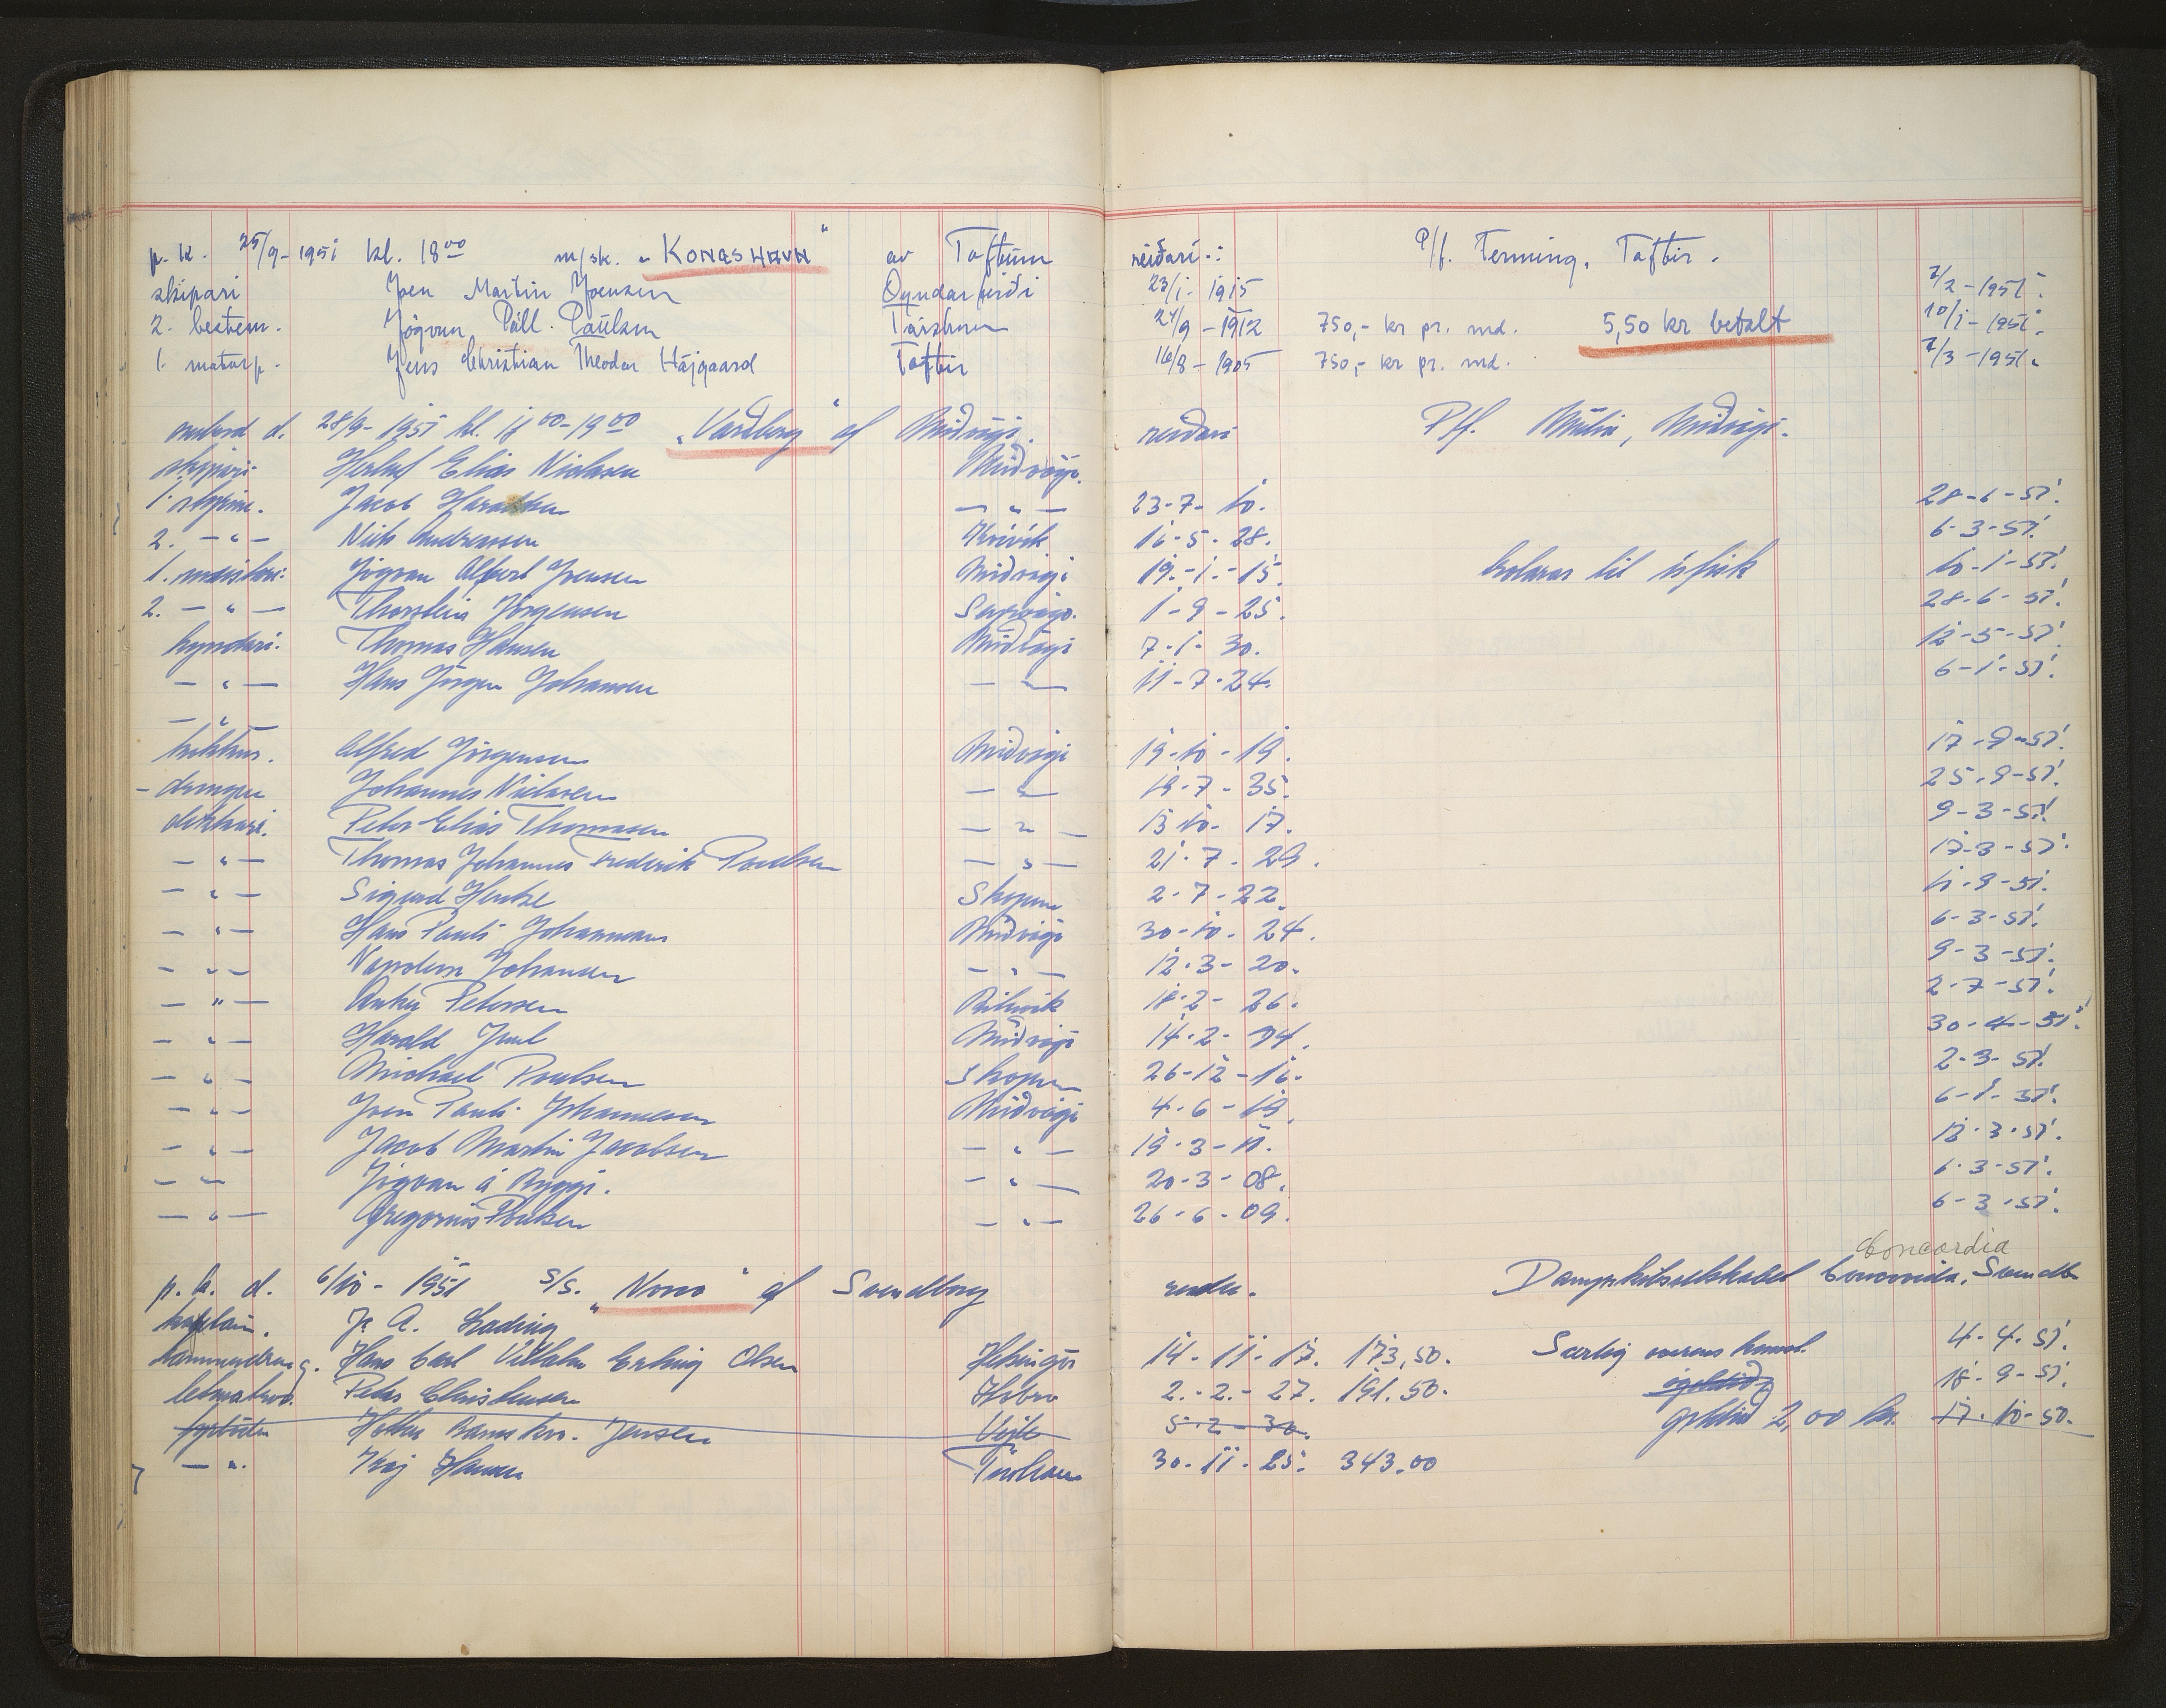 p. k. 25/9-1951 kl. 18⁰⁰ m/sk. „KONGSHAVN“ av Toftum reiðarí: P/f. Temming. Toftir.
skipari Joen Martin Joensen Oyndarfirði 23/1-1915 7/2-1951.
2. bestem. Jógvan Páll Paulsen Tórshavn 24/9-1912 750,- kr pr. md. 5,50 kr betalt 10/1-1951.
1. motorp. Jens Christian Theodor Højgaard Toftir 16/8-1905 750,- kr pr. md. 7/3-1951.
umbord d. 28/9-1951 kl. 17⁰⁰-19⁰⁰ „Vardberg“ af Miðvági. reiðari P/f. Miðvági.
skipari Herluf Elias Nielsen Miðvági.
1. stýrim. Jacob Haraldsen — " — 23-7-10. 28-6-51.
2. — " — Niels Andreassen Kvívík 16-5-28. 6-3-51.
1. meistari Jógvan Albert Joensen Miðvági 19-1-15. kolaras til ísfisk 10-1-51.
2. — " — Thorstein Jörgensen Sørvági. 1-9-25. 28-6-51.
kyndari Thomas Hansen Miðvági 7-1-30. 12-5-51.
— " — Hans Jörgen Johansen — " — 11-7-24. 6-1-51.
— " —
kokkur. Alfred Jörgensen Miðvági 19-10-19. 17-9-51.
- drongur Johannes Nielsen — " — 19-7-35. 25-9-51.
dekkari. Peter Elias Thomasen — " — 13-10-17. 9-3-51.
— " — Thomas Johannes Frederik Poulsen — " — 21-7-29. 17-3-51.
— " — Sigurd Hentze Skopun 2-7-22. 11-9-51.
— " — Hans Pauli Johannesen Miðvági 30-10-24. 6-3-51.
— " — Napoleon Johansen — " — 12-3-20. 9-3-51.
— " — Petersen 18-2-26. 2-7-51.
— " — Harald Juul Miðvági 14-2-34. 30-4-51.
— " — Michael Poulsen Skopun 26-12-16. 2-3-51.
— " — Joen Pauli Johannesen Miðvági 4-6-19. 6-1-51.
— " — Jacob Martin Jacobsen — " — 19-3-11. 13-3-51.
— " — Jógvan á Ryggi. — " — 20-3-08. 6-3-51.
— " — Gregorius Poulsen — " — 26-6-09. 6-3-51.
Concordia
p. k. d. 6/10-1951 s/s. „Noco“ af Svendborg reder. Dampskibsselskabet Concordia, Svendb
kaptain. J. A. Lading
kammerdreng. Hans Carl Vilhelm Erling Olsen Helsingör 14-11-17. 173,50. Særlig overenskomst 4-4-51.
letmatros. Peter Christensen Hobro 2-2-27. 191.50. 18-9-51.
fyrböder Jensen Vejle 5-2-30. 2,00 kr. 17-10-50.
— " — Kaj Hansen Tórshavn 30-11-25. 343.00